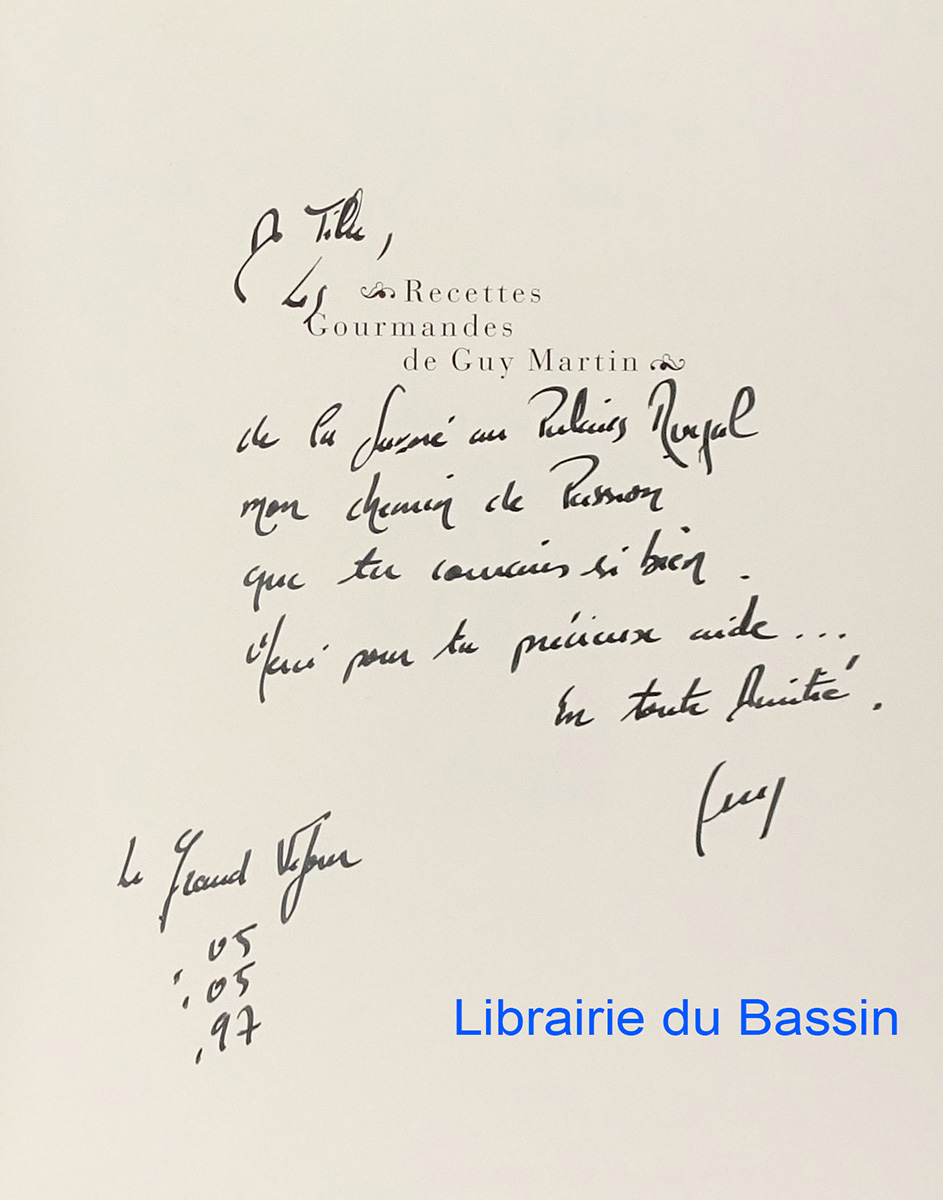 Les Recettes
Gourmandes
de Guy Martin
de la Savoie au Palais Royal
mon chemin de Passion
que tu connais si bien.
Merci pour ta précieuse aide...
En toute Amitié.
Guy
Le Grand Véfour
05
05
97
Librairie du Bassin